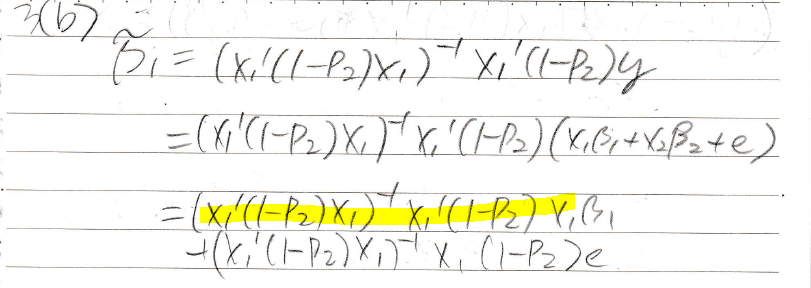 3(b)
β̃₁ = (X₁'(1-P₂)X₁)⁻¹ X₁'(1-P₂)y
=(X₁'(1-P₂)X₁)⁻¹ X₁'(1-P₂)(X₁β₁+X₂β₂+e)
=(X₁'(1-P₂)X₁)⁻¹ X₁'(1-P₂) X₁β₁
+(X₁'(1-P₂)X₁)⁻¹ X₁ (1-P₂)e